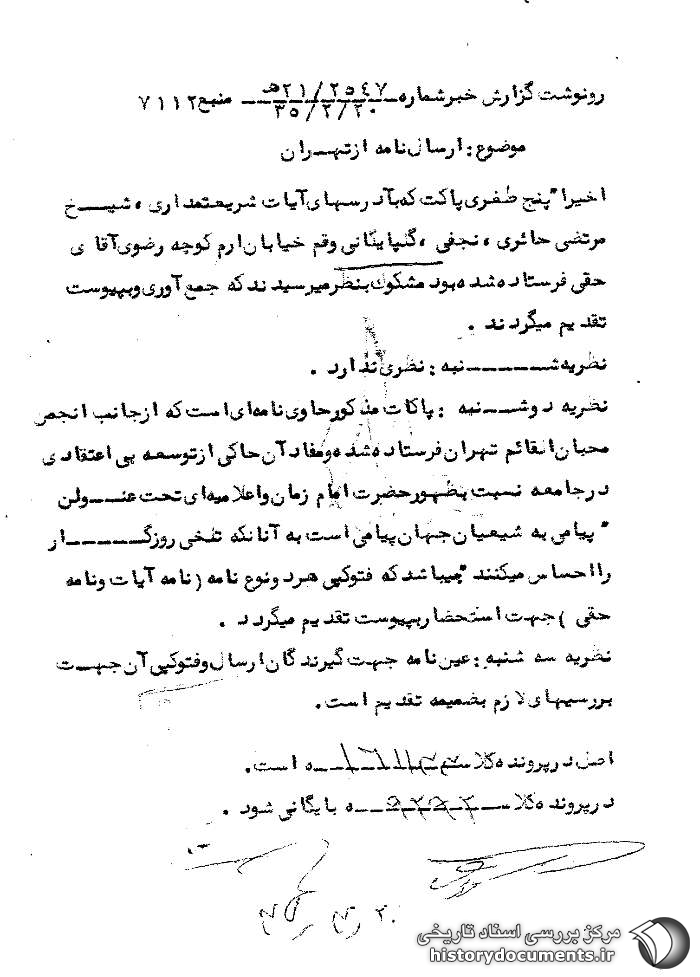 رونوشت گزارش خبرشماره ۲۱/۲۵۴۷ه‍ ۳۵/۲/۲۰ منبع ۷۱۱۲
موضوع : ارسال نامه از تهـــران
اخیرا" پنج طغری پاکت که بآدرسهای آیات شریعتمداری ، شیـــخ
مرتضی حائری ، نجفی ، گلپایگانی وقم خیابان ارم کوچه رضوی آقای
حقی فرستاده شده بود مشکوک بنظر میرسیدند که جمع آوری وبپیوست
تقدیم میگردند .
نظریه شــــــنبه : نظری ندارد .
نظریه دوشــنبه : پاکات مذکور حاوی نامه ای است که از جانب انجمن
محبان القائم تهران فرستاده شده ومفاد آن حاکی از توسعه بی اعتقادی
در جامعه نسبت بظهور حضرت امام زمان واعلامیه ای تحت عنـــوان
" پیامی به شیعیان جهان پیامی است به آنانکه تلخی روزگـــــار
را احساس میکنند " میباشد که فتوکپی هر دو نوع نامه ( نامه آیات ونامه
حقی ) جهت استحضار بپیوست تقدیم میگردد .
نظریه سه شنبه : عین نامه جهت گیرندگان ارسال وفتوکپی آن جهــت
بررسیهای لازم بضمیمه تقدیم است .
اصل در پرونده کلاســه است .
در پرونده کلاســه بایگانی شود .
مرکز بررسی اسناد تاریخی
historydocuments.ir